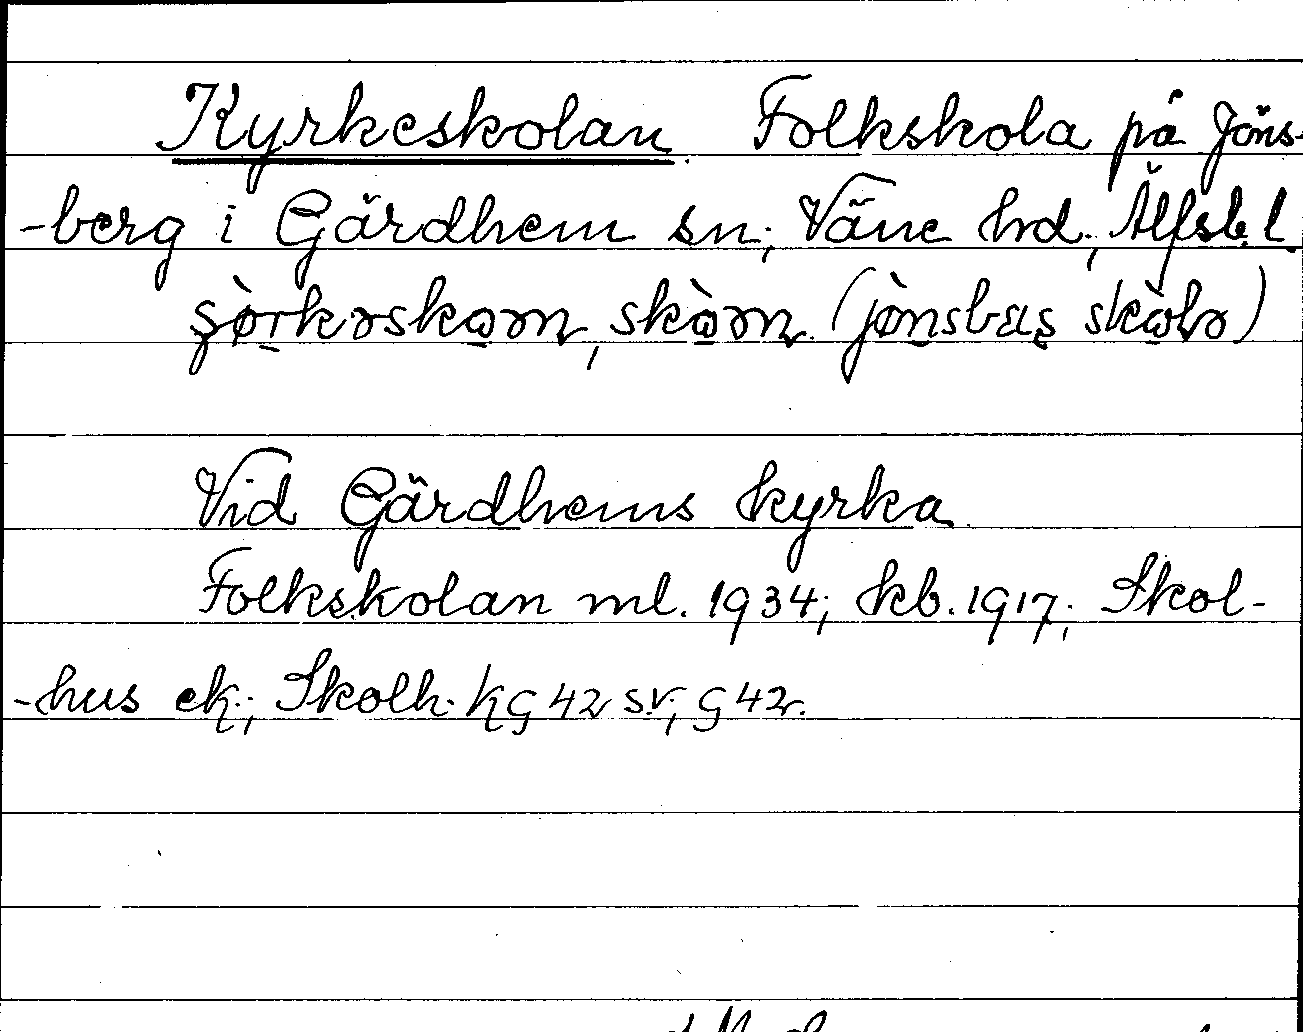 Kyrkeskolan. Folkskola på Jöns-
-berg i Gärdhem sn; Väne hd; Älfsb. l
Vid Gärdhems kyrka.
Folkskolan ml. 1934; kb. 1917; Skol-
-hus ek; Skolh. KG 42 SV; G 42.